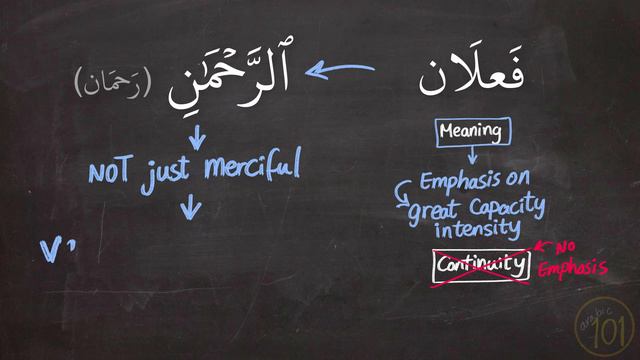 فَعلَان
ٱلرَّحْمَٰنِ
(رَحمَان)
NOT just merciful
Meaning
Emphasis on
great Capacity
intensity
Continuity
No
Emphasis
arabic
101